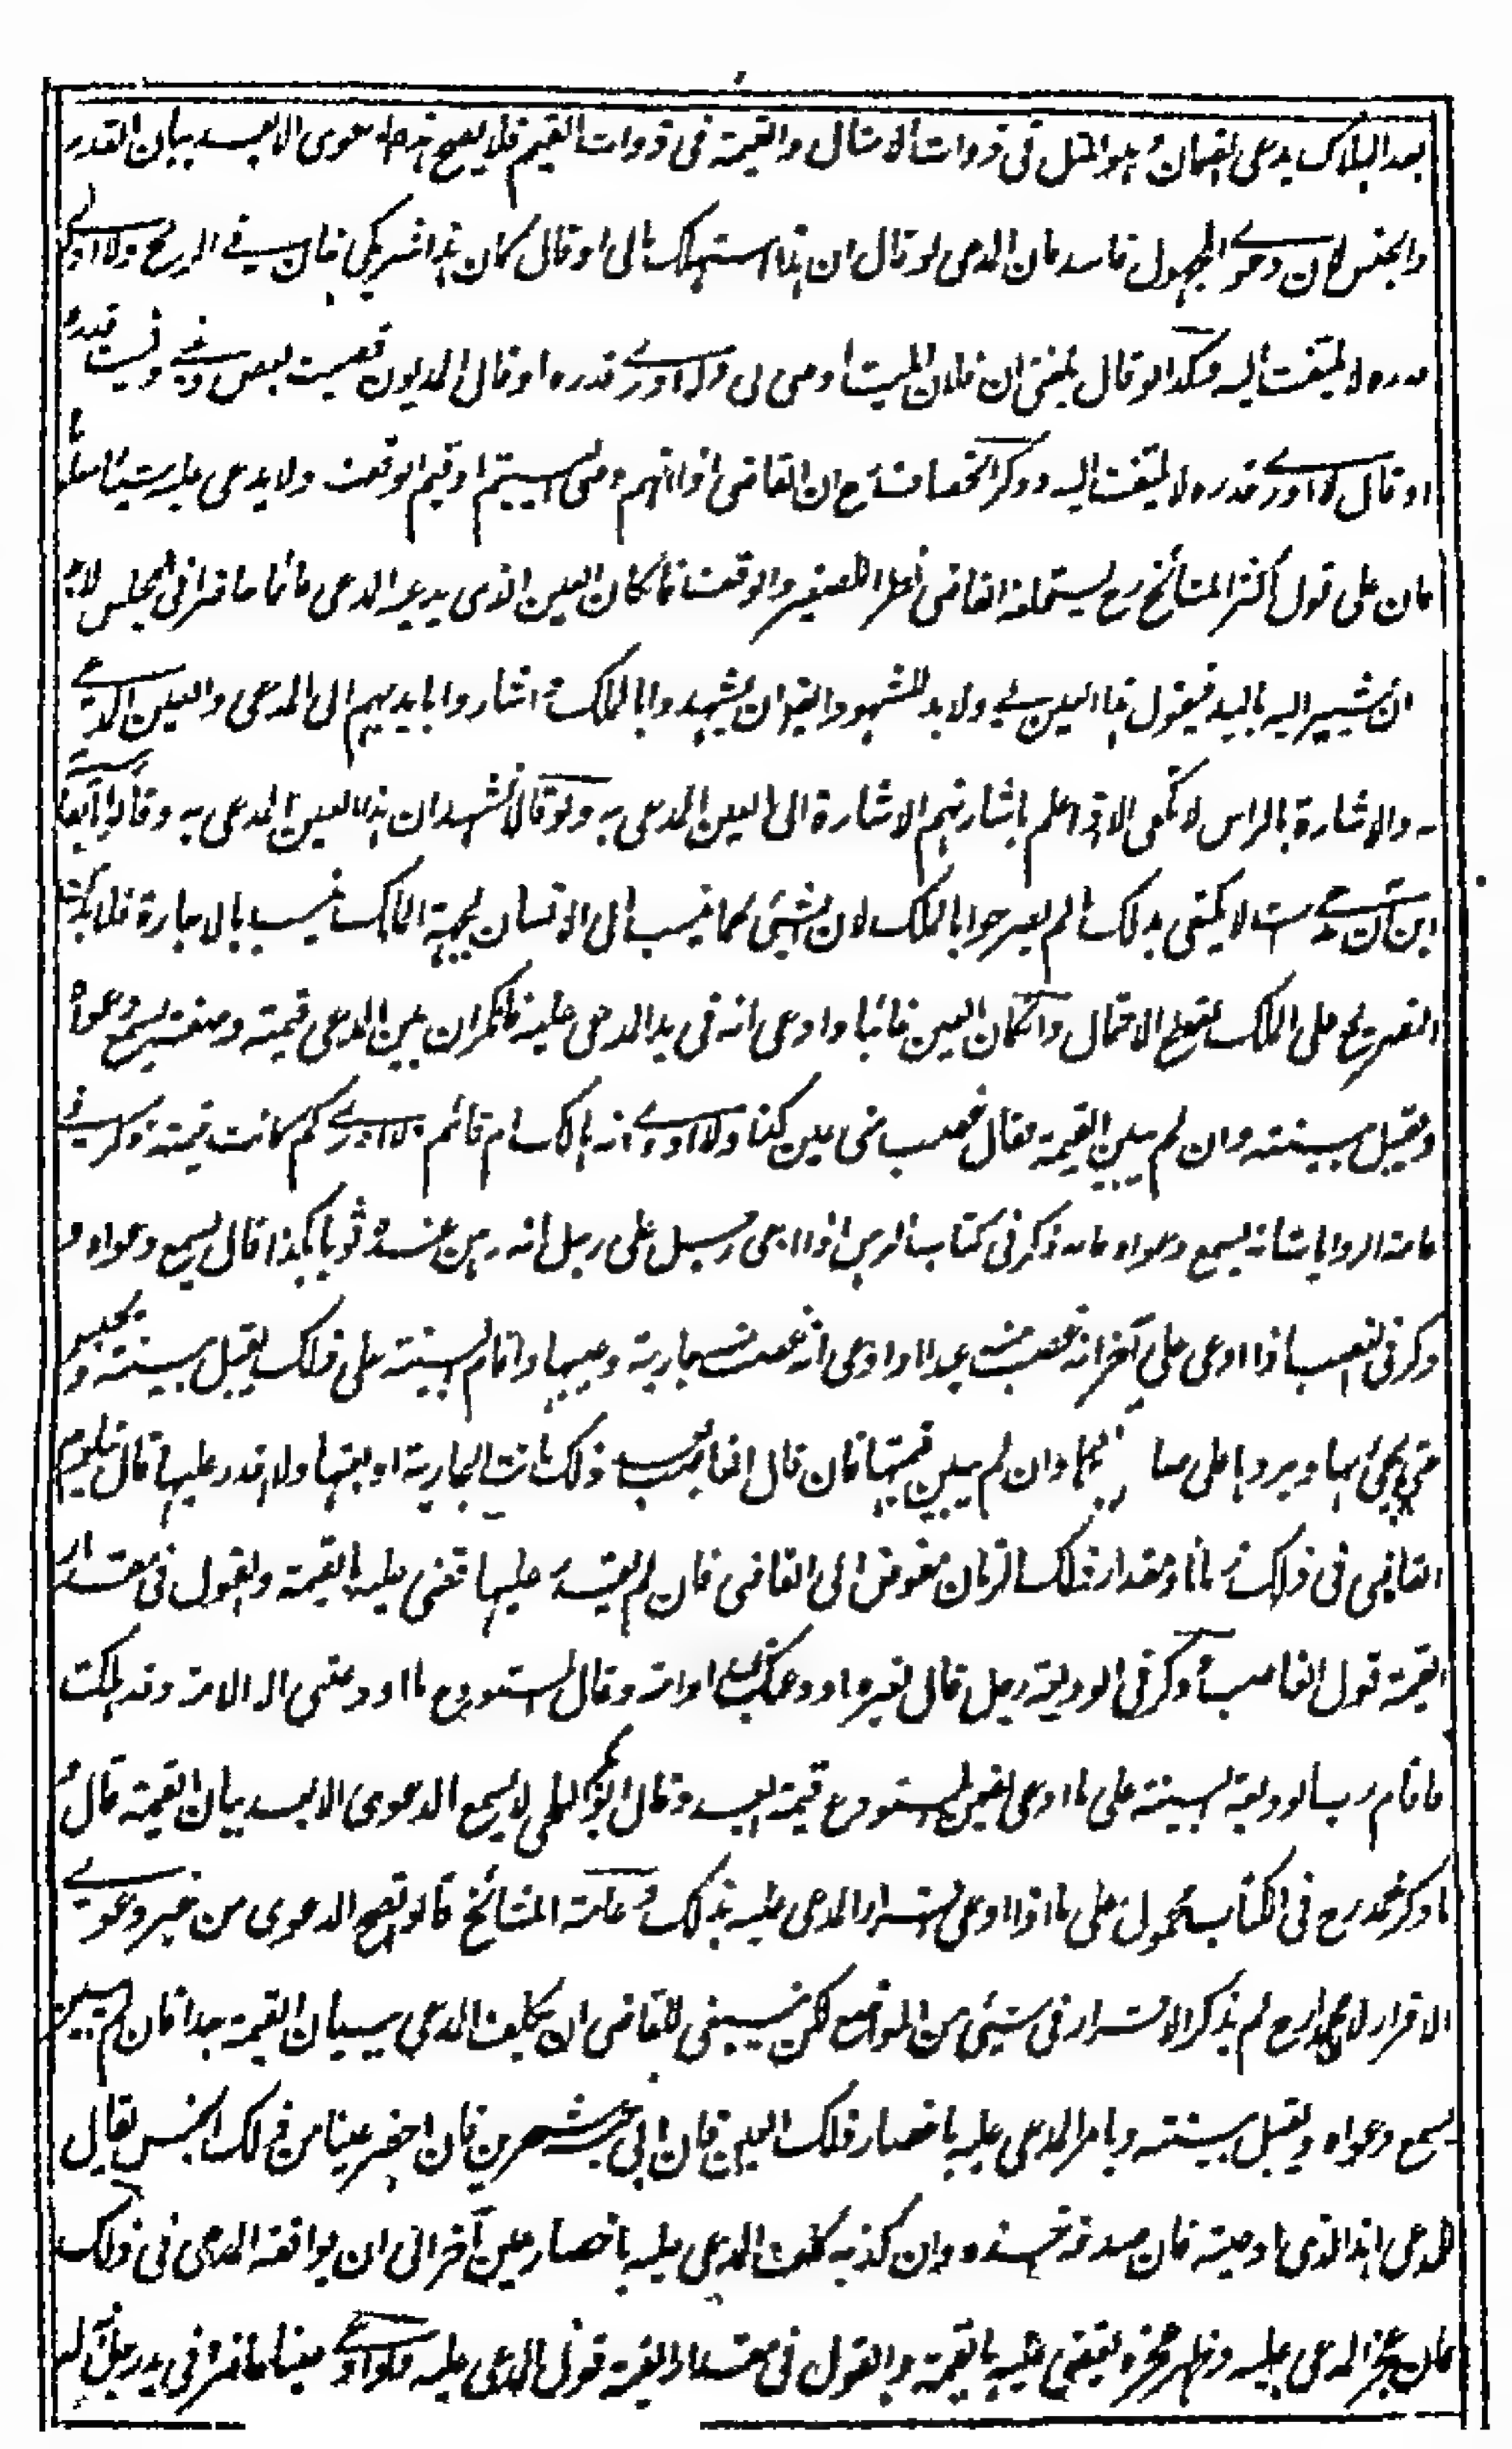 بعد الهلاك يدعى الضمان وهو المثل في ذوات الامثال والقيمة في ذوات القيم فلا يصح هذه الدعوى الا بعد بيان القدر
والجنس لان دعوى المجهول فاسد فان المدعى لو قال ان هذا استهلك مالى او قال كان هذا شريكى خان في الربح ولا ادرى
قدره لا يلتفت اليه وكذا لو قال بلغنى ان فلان الميت اوصى لى ولا ادرى قدره او قال المديون قضيت بعض دينى ونسيت قدره
او قال لا ادرى قدره لا يلتفت اليه وذكر الخصاف رح ان القاضى اذا اتهم وصى اليتيم او قيم الوقف ولا يدعى عليه شيئا معلوما
فان على قول اكثر المشائخ رح يستحلفه القاضى نظرا للصغير والوقف فاما كان العين الذى يدعيه المدعى قائما حاضرا في المجلس لابد
ان يشير اليه باليد فيقول هذا العين لى ولا بد للشهود ايضا ان يشهدوا بالملك له اشاروا بايديهم الى المدعى والعين المدعى
به والاشارة بالراس لا تكفى الا اذا علم باشارتهم الاشارة الى العين المدعى به ولو قالا نشهد ان هذا العين المدعى به وقالا بالفارسية
اين آن مدعى ست لا يكتفى بذلك ما لم يصرحوا بالملك لان الشئ كما ينسب الى الانسان بجهة الملك ينسب بالاجارة فلا بد من
التصريح على الملك لقطع الاحتمال وان كان العين غائبا وادعى انه في يد المدعى عليه فانكر ان بين المدعى قيمته وصفته يسمع دعواه
ويقبل بينته وان لم يبين القيمة فقال غصب منى عين كذا ولا ادرى انه هالك ام قائم ولا ادرى كم كانت قيمته ذكر في
عامة الروايات انه يسمع دعواه فانه ذكر في كتاب الرهن اذا ادعى رجل على رجل انه رهن عنده ثوبا هكذا قال يسمع دعواه و
ذكر في الغصب اذا ادعى على آخر انه غصب منه عبدا او ادعى انه غصب منه جارية وغيبها واقام البينة على ذلك يقبل بينته ويحبس
حتى يجئ بها ويردها على صاحبها وان لم يبين قيمتها فان قال الغاصب بعد ذلك ماتت الجارية او بعتها ولا اقدر عليها قال يتلوم
القاضى في ذلك زمانا ومقدار ذلك الزمان مفوض الى القاضى فان لم يقدر عليها قضى عليه بالقيمة والقول في مقدار
القيمة قول الغاصب وذكر في الوديعة رجل قال لغيره اودعتك عبدا او امة وقال المستودع ما اودعتنى الا الامة وقد هلكت
فاقام رب الوديعة البينة على ما ادعى يضمن المستودع قيمة العبد وقال ابو بكر البلخى لا يسمع الدعوى الا بعد بيان القيمة قال و
ما ذكر محمد رح في الكتاب محمول على ما اذا ادعى اقرار المدعى عليه بذلك وعامة المشائخ قالوا يصح الدعوى من غير دعوى
الاقرار لان محمدا رح لم يذكر الاقرار في شئ من المواضع لكن ينبغى للقاضى ان يكلف المدعى ببيان القيمة جدا فان لم يبين
يسمع دعواه ويقبل بينته ويامر المدعى عليه باحضار ذلك العين فان ابى حبس شهرين فان احضر عينا من ذلك الجنس يقال
للمدعى اهذا الذى ادعيته فان صدقه اخذه وان كذبه كلف المدعى عليه باحضار عين آخر الى ان يوافقه المدعى في ذلك
فان عجز المدعى عليه وظهر عجزه يقضى عليه بالقيمة والقول في مقدار القيمة قول المدعى عليه ولو ادعى عينا حاضرا في يد رجل انه له